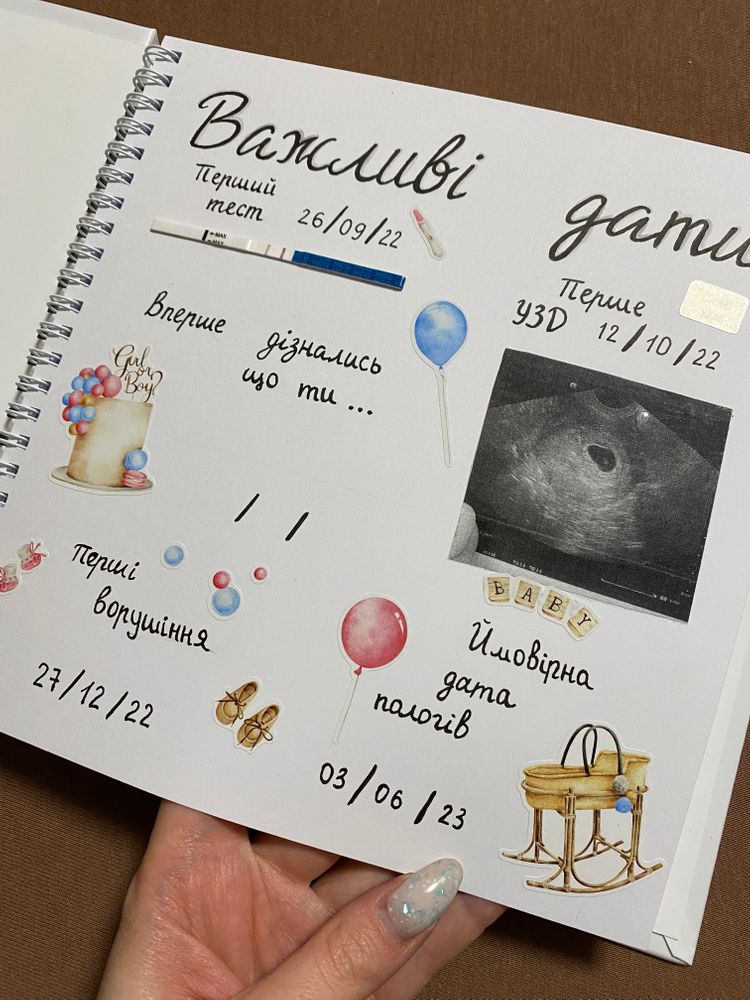 Важливі дати
Перший
тест 26/09/22
←MAX
←MAX
Перше
УЗД 12/10/22
Вперше дізнались
що ти ...
Girl
or
Boy?
/ /
BABY
Перші
ворушіння
27/12/22
Ймовірна
дата
пологів
03/06/23